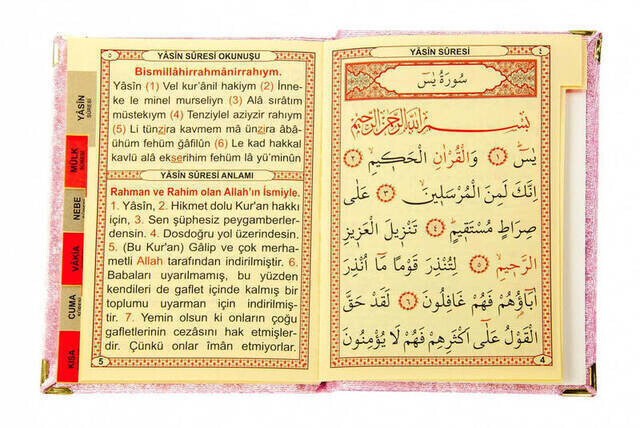 ٥
YÂSİN SÛRESİ OKUNUŞU
Bismillâhirrahmânirrahıym.
Yâsîn (1) Vel kur'ânil hakiym (2) İnne-
ke le minel murseliyn (3) Alâ sırâtım
müstekıym (4) Tenziylel aziyzir rahıym
(5) Li tünzira kavmem mâ ünzira âbâ-
ühüm fehüm gâfilûn (6) Le kad hakkal
kavlü alâ ekserihim fehüm lâ yü'minûn
YÂSİN SÛRESİ ANLAMI
Rahman ve Rahim olan Allah'ın İsmiyle.
1. Yâsîn, 2. Hikmet dolu Kur'an hakkı
için, 3. Sen şüphesiz peygamberler-
densin. 4. Dosdoğru yol üzerindesin.
5. (Bu Kur'an) Gâlip ve çok merha-
metli Allah tarafından indirilmiştir. 6.
Babaları uyarılmamış, bu yüzden
kendileri de gaflet içinde kalmış bir
toplumu uyarman için indirilmiş-
tir. 7. Yemin olsun ki onların çoğu
gafletlerinin cezasını hak etmişler-
dir. Çünkü onlar îman etmiyorlar.
5
YÂSİN
SÛRESİ
MÜLK
NEBE
VAKIA
CUMA
KISA
YÂSİN SÛRESİ
٤
سُورَةُ يٰسٓ
بِسْمِ اللّٰهِ الرَّحْمٰنِ الرَّحِيمِ
يٰسٓ ﴿١﴾ وَالْقُرْاٰنِ الْحَكِيمِ ﴿٢﴾
اِنَّكَ لَمِنَ الْمُرْسَلِينَ ﴿٣﴾ عَلٰى
صِرَاطٍ مُسْتَقِيمٍ ﴿٤﴾ تَنْزِيلَ الْعَزِيزِ
الرَّحِيمِ ﴿٥﴾ لِتُنْذِرَ قَوْمًا مَٓا اُنْذِرَ
اٰبَٓاؤُ۬هُمْ فَهُمْ غَافِلُونَ ﴿٦﴾ لَقَدْ حَقَّ
الْقَوْلُ عَلٰٓى اَكْثَرِهِمْ فَهُمْ لَا يُؤْمِنُونَ
4